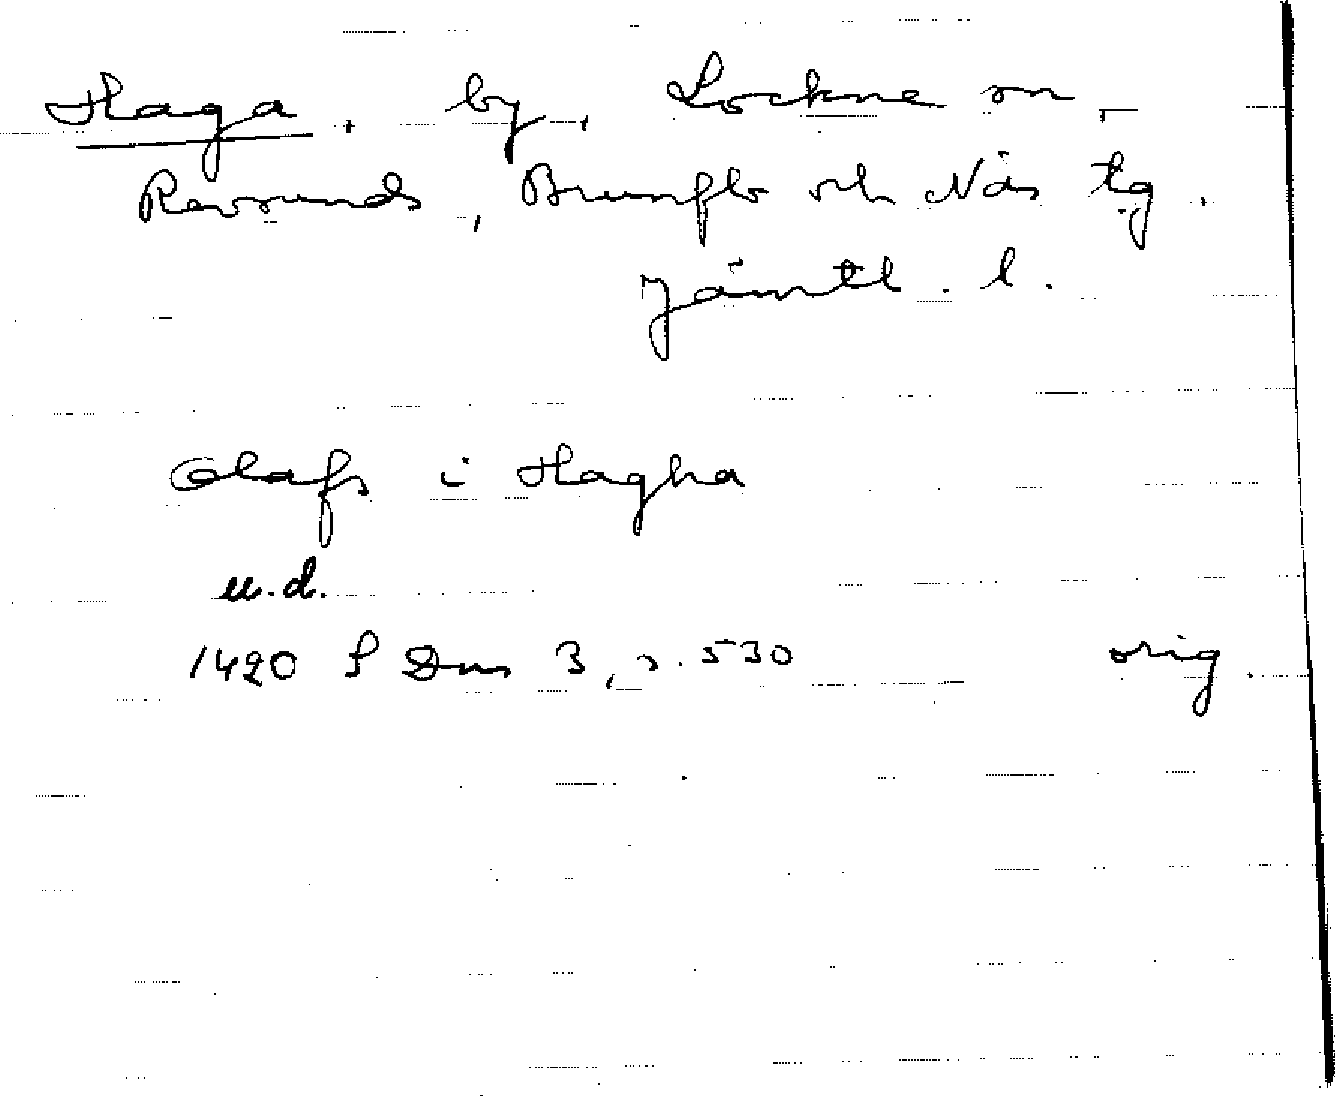 Haga, by, Lockne sn,
Revsunds, Brunflo och Näs tg.
Jämtl. l.
Olafs i Hagha
u.d.
1420 JHD 3, s. 530 orig.